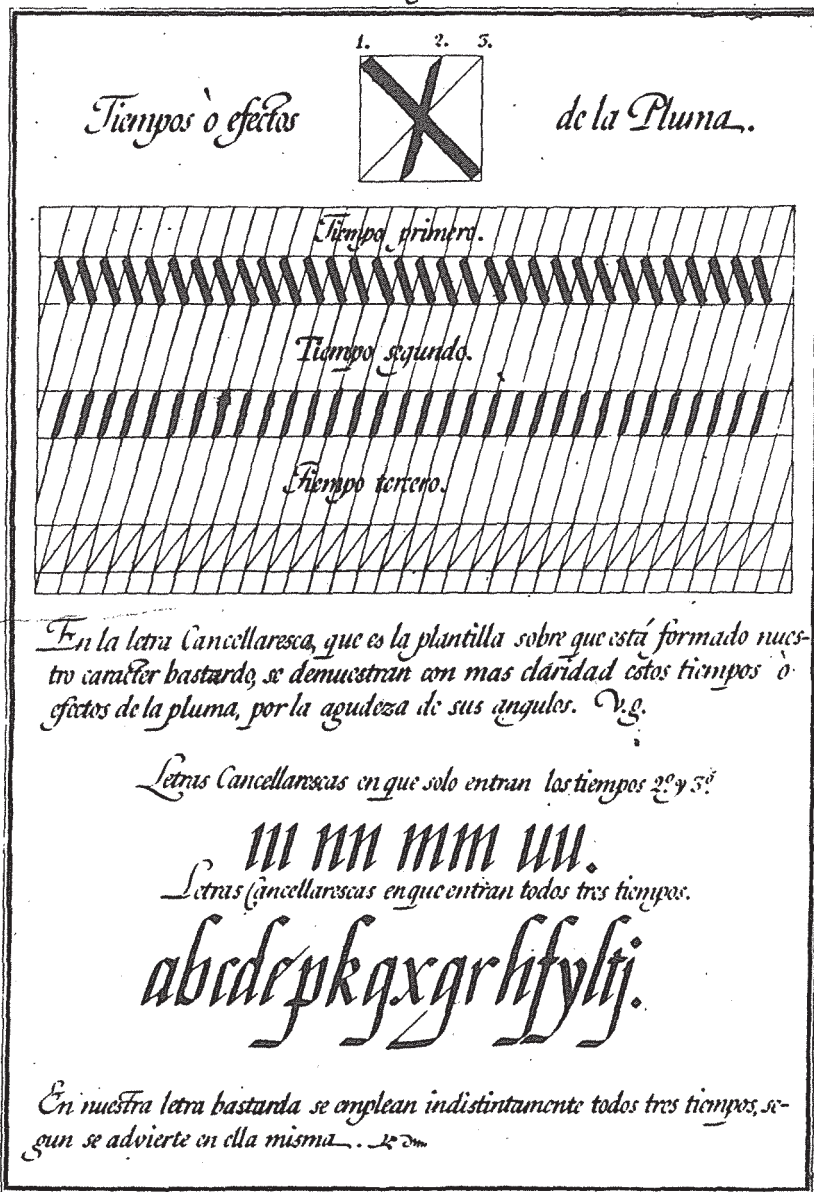 1. 2. 3.
Tiempos ò efectos de la Pluma.
Tiempo primero.
Tiempo segundo.
Tiempo tercero.
En la letra Cancellaresca, que es la plantilla sobre que está formado nues-
tro caracter bastardo, se demuestran con mas claridad estos tiempos ò
efectos de la pluma, por la agudeza de sus angulos. V.g.
Letras Cancellarescas en que solo entran los tiempos 2º y 3º
ııı nn mm uu.
Letras Cancellarescas en que entran todos tres tiempos.
abcdepkqxgrhfylſtj.
En nuestra letra bastarda se emplean indistintamente todos tres tiempos, se-
gun se advierte en ella misma.